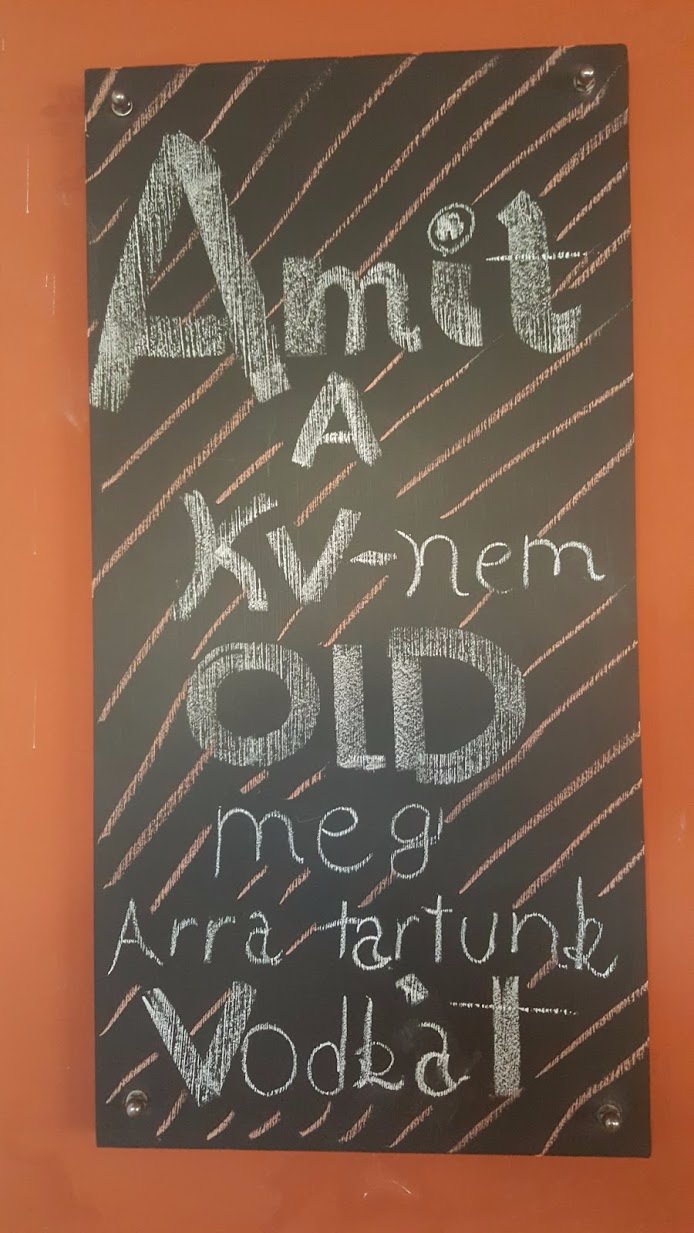 Amit
A
KV-nem
OLD
meg
Arra tartunk
Vodkát